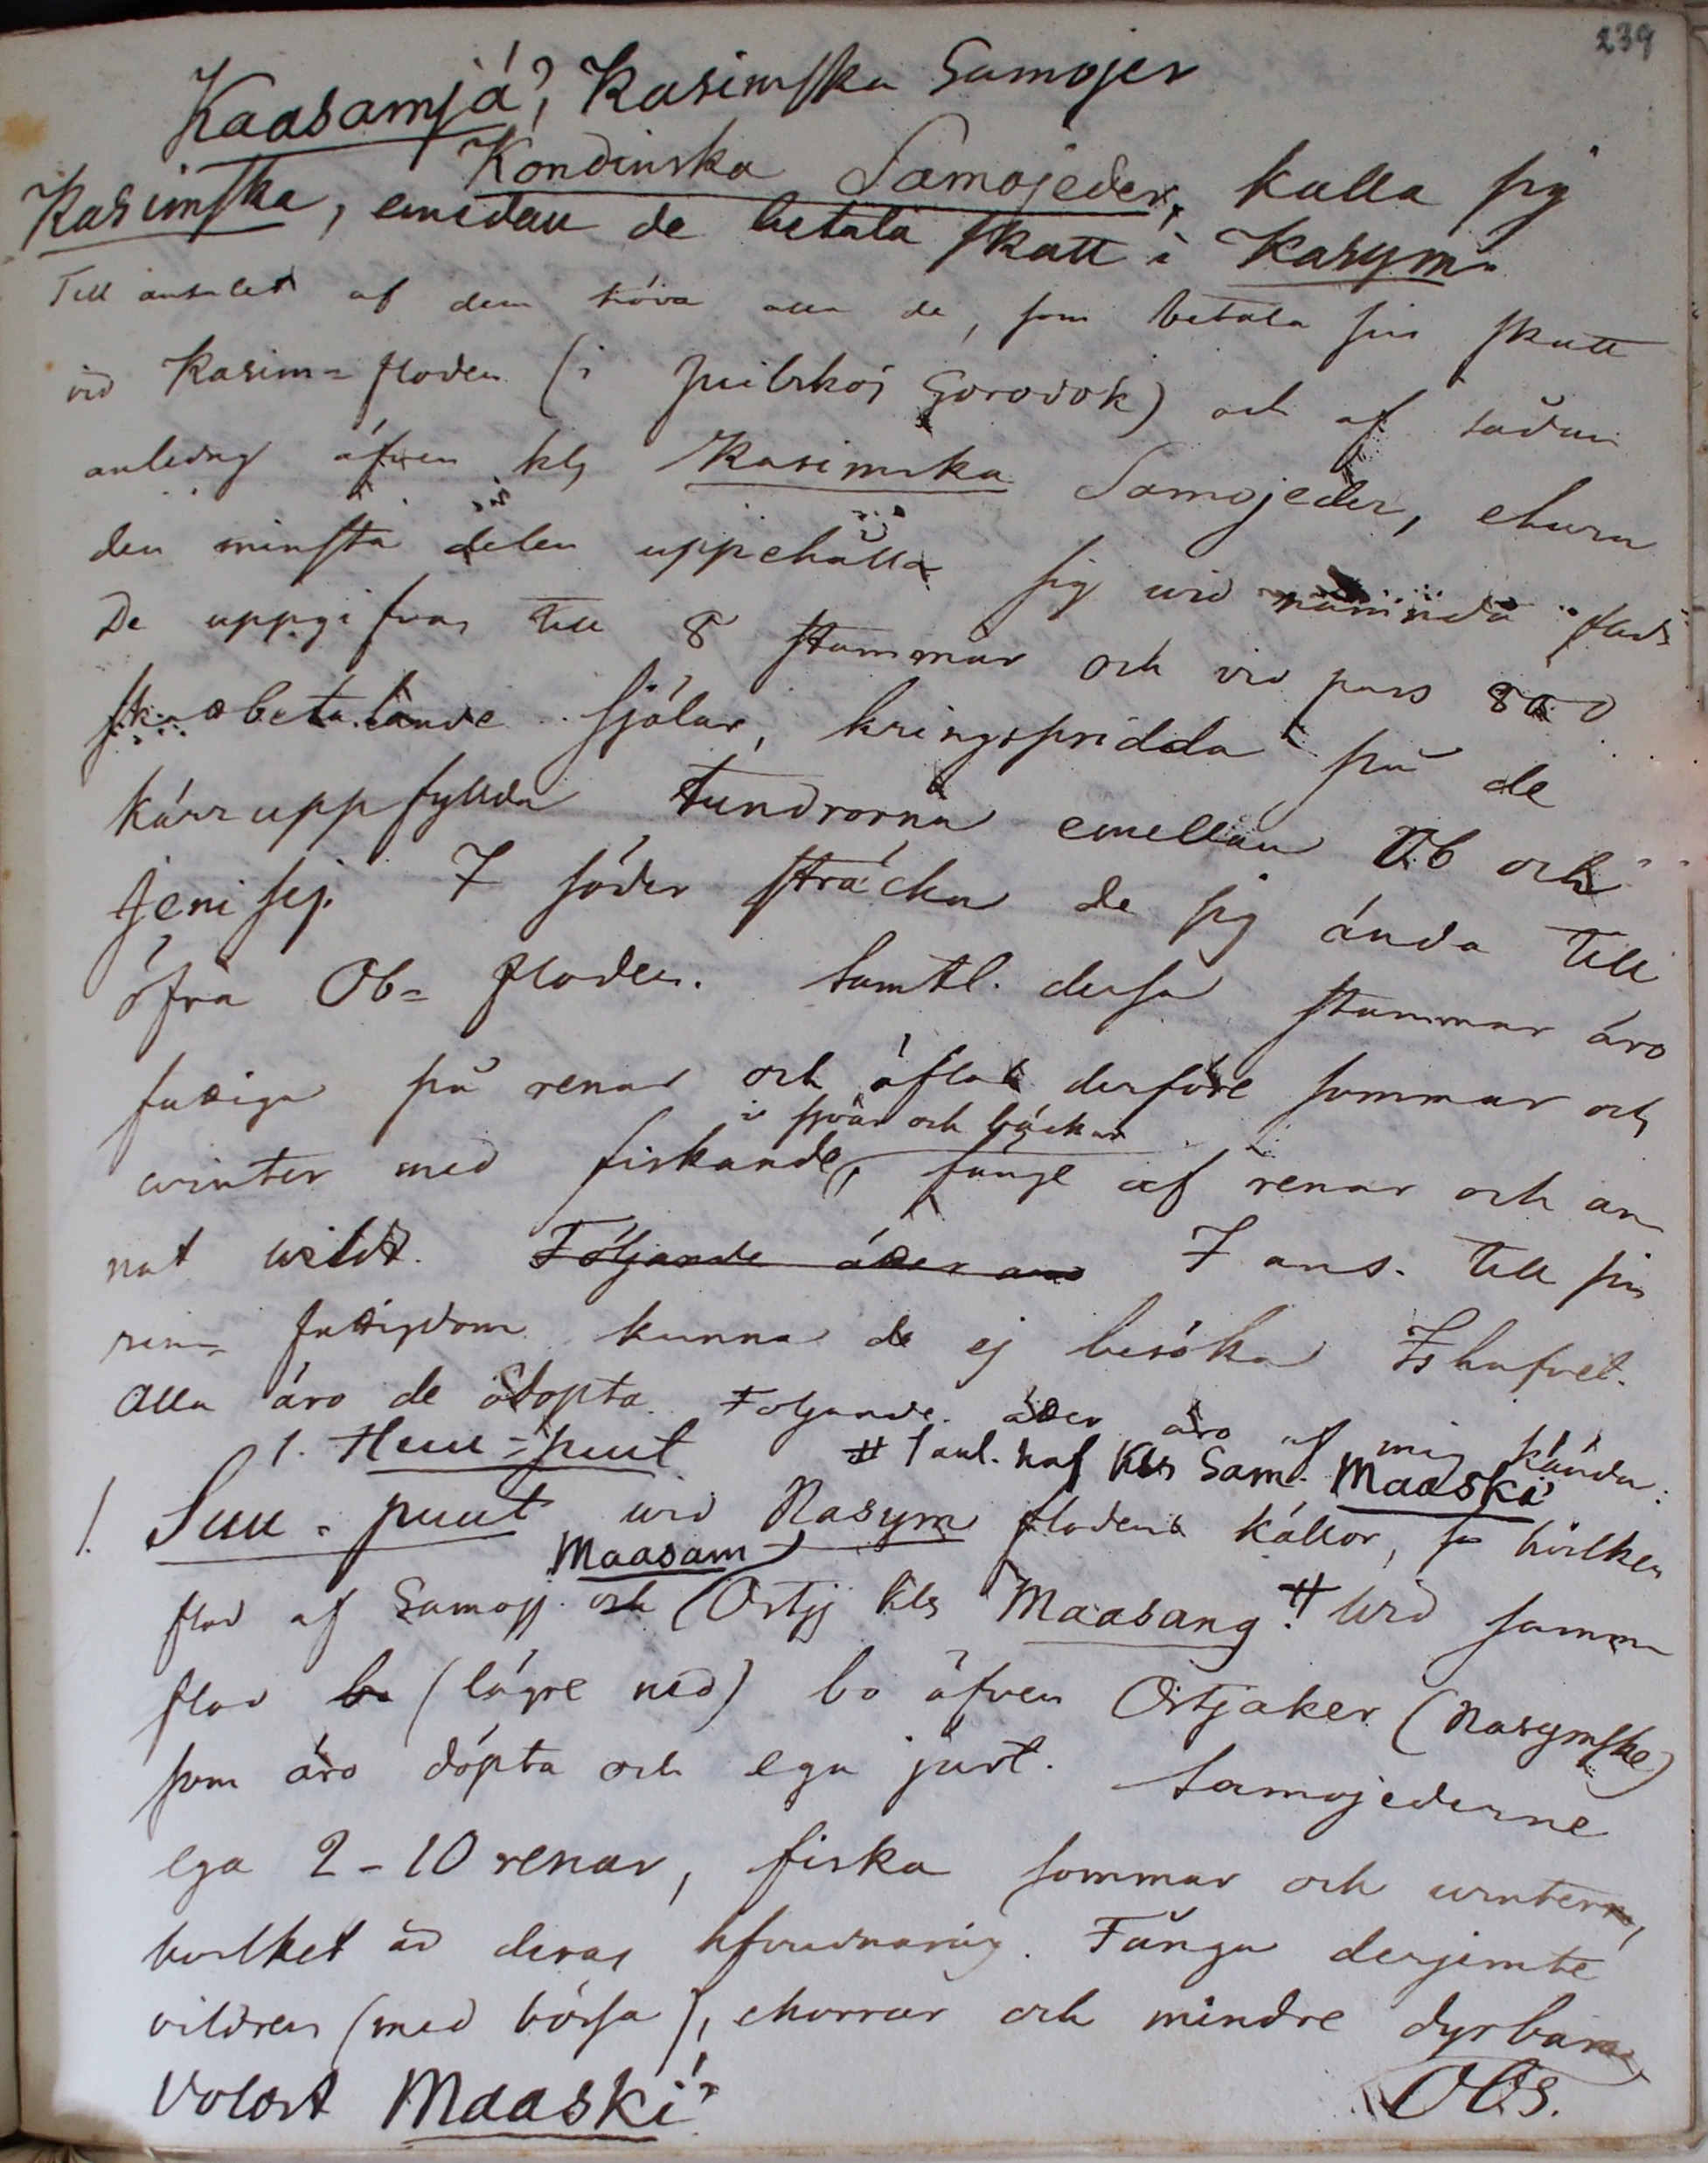 239
Kaasamjá', Kasimska Samojer
Kondinska Samojeder, kalla sig
Kasimska, emedan de betala skatt i Kasym.
Till antalet af dem höra alla de, som betala sin skatt
vid Kasim=floden (i Juilskoj Gorodok) och af sådan
anledng äfven kls Kasimska Samojeder, ehuru
den minsta delen uppehålla sig wid nämnda flod
De uppgifvas till 8 stammar och vid pass 800
skattbetalande själar, kringspridda på de
kärruppfyllda tundrorna emellan Ob och
Jenisej. I söder sträcka de sig ända till
öfra Ob= floden. Samtl. dessa stammar äro
fattiga på renar och äflas derföre sommar och
i sjöar och bäckar
winter med fiskande, fånge af renar och an
nat wildt. Följande äro I ans. till sin
ren= fattigdom kunna de ej besöka Ishafvet.
Alla äro de odöpta. Följande äro af mig kända:
1. Huu=puut # 1 anl. kls Sam. Maaski'
1. Suu-puut wid Nasym flodens källor, hvilken
Maasam
flod af Samojj. och Ostjj kls Maasang.# Wid samma
flod bo (lägre ned) bo äfven Ostjaker (Nasymske)
som äro döpta och ega jurt. Samojederne
ega 2-10 renar, fiska sommar och wintern,
hvilket är deras hfvudnäring. Fånga derjemte
vildren (med bössa), ekorrar och mindre dyrbara
Volost Maaski' Obs.